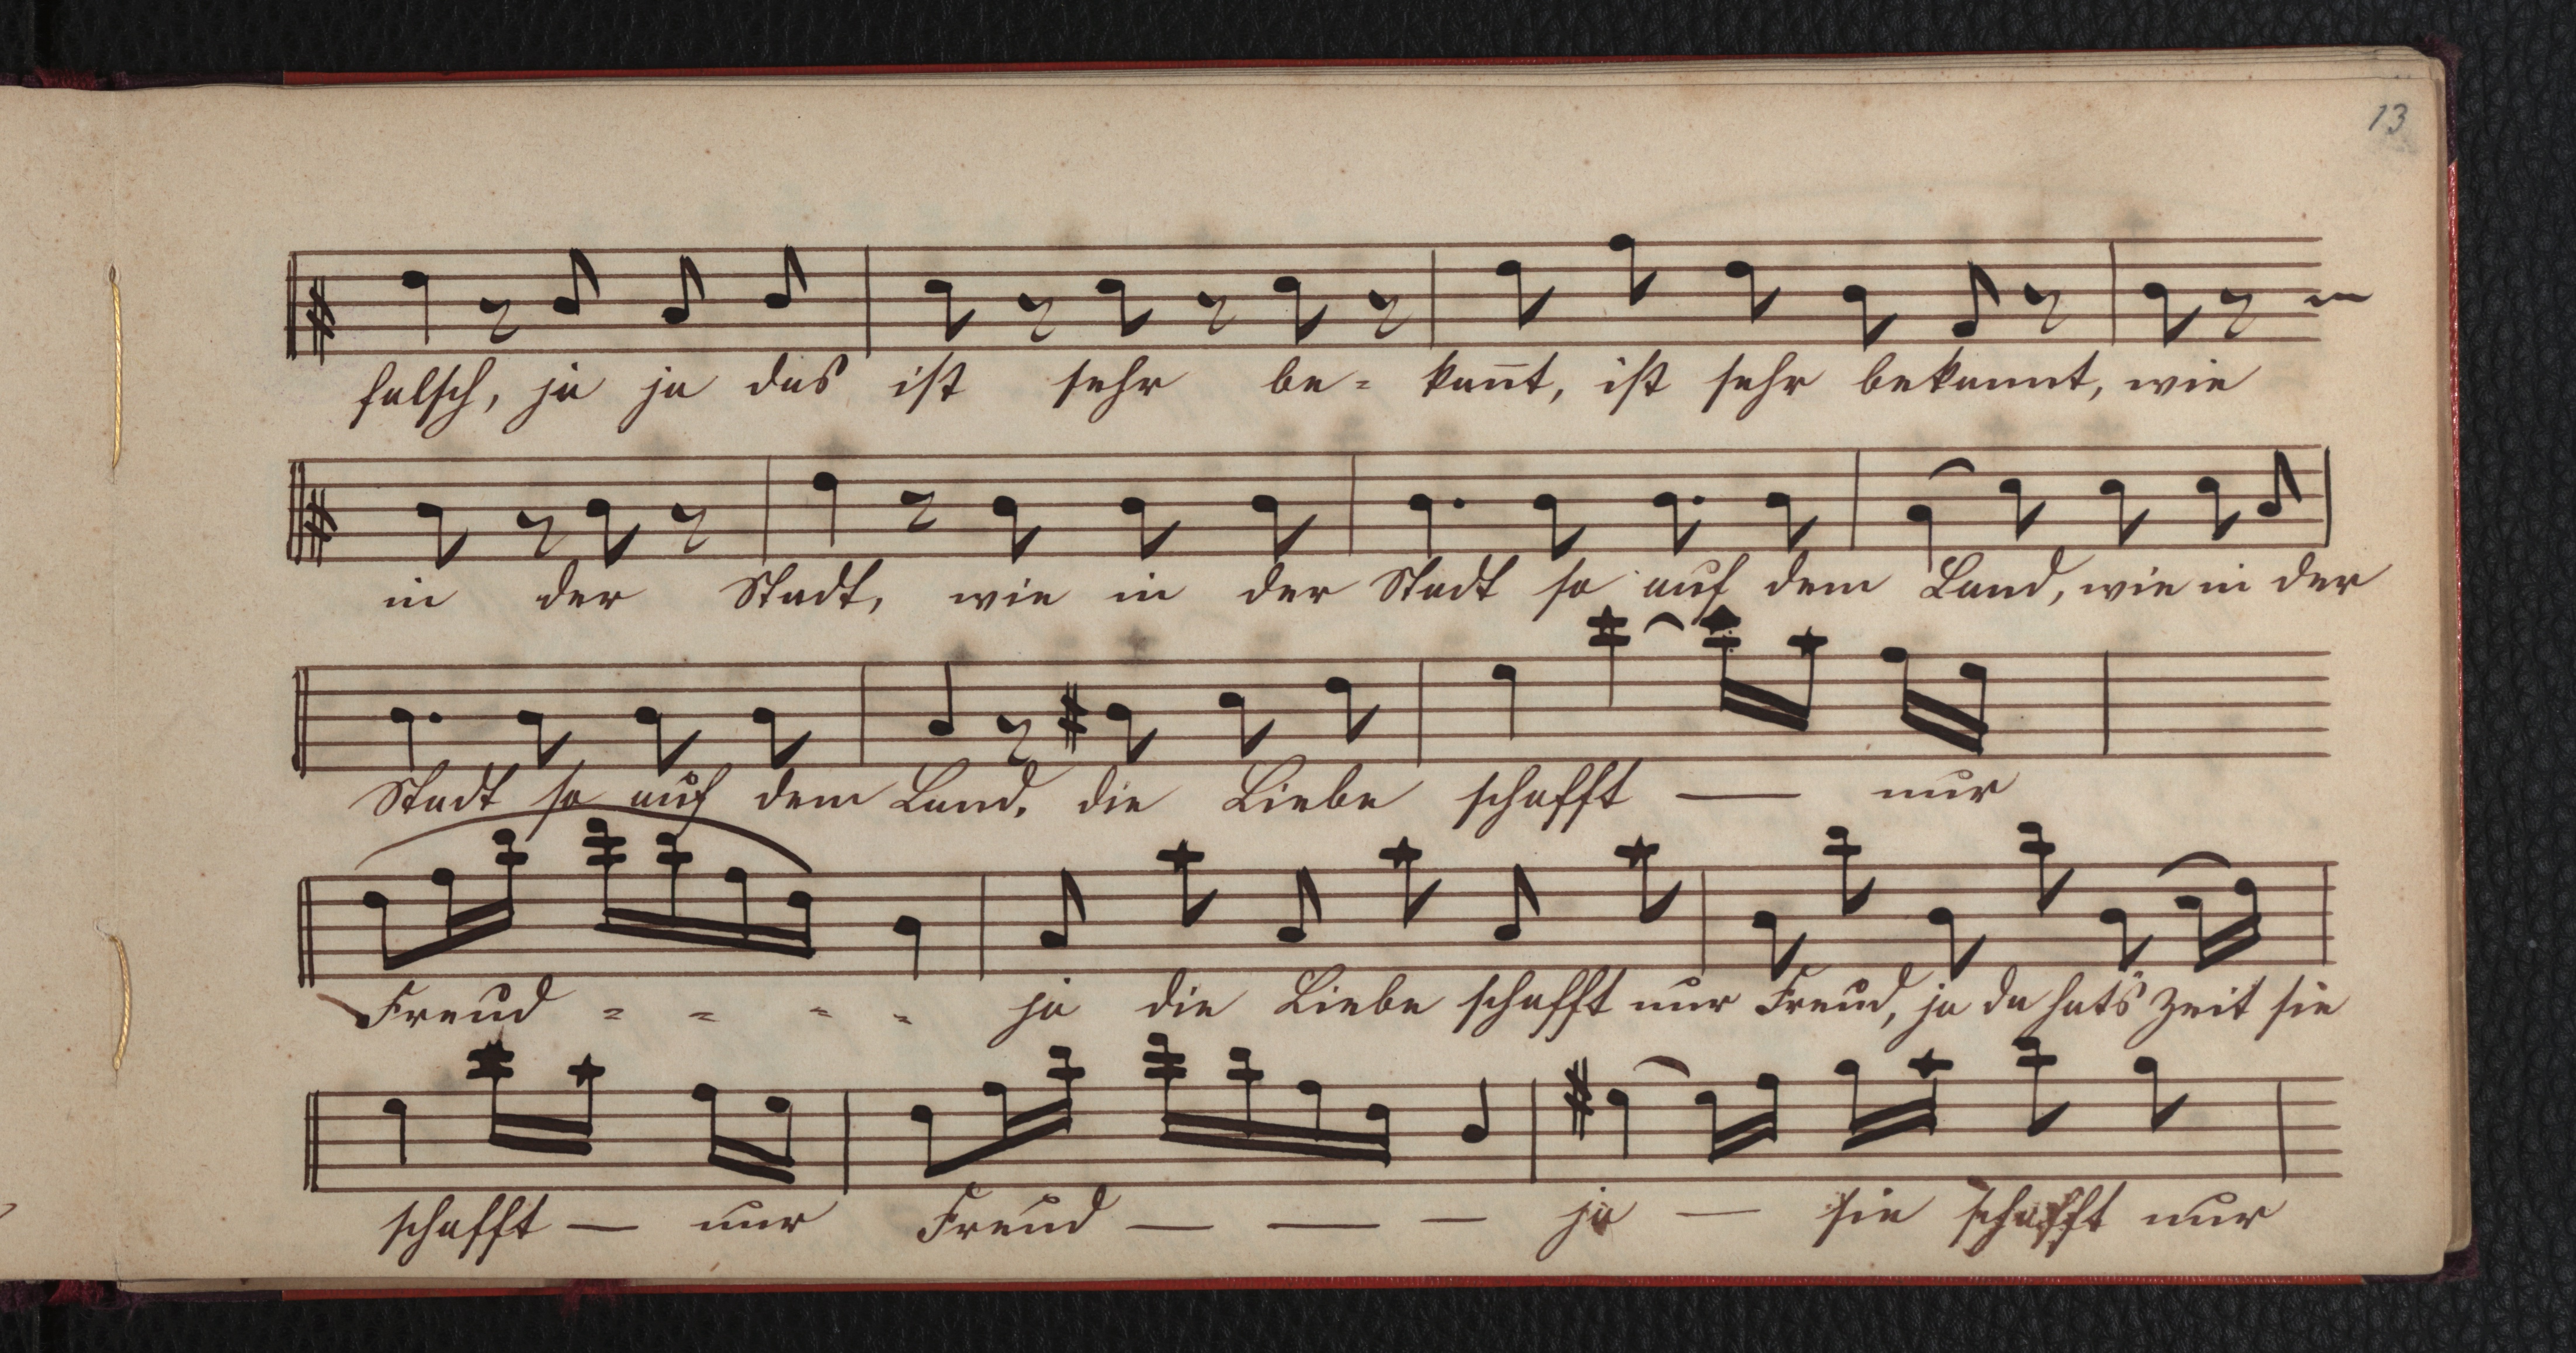 13
falsch, ja ja das ist sehr be= kan̄t, ist sehr bekannt, wie
in der Stadt, wie in der Stadt so auf dem Land, wie in der
Stadt so auf dem Land, die Liebe schafft — nur
Freud = = = = ja die Liebe schafft nur Freud, ja da hats Zeit sie
schafft — nur Freud — — — ja — sie schafft nur